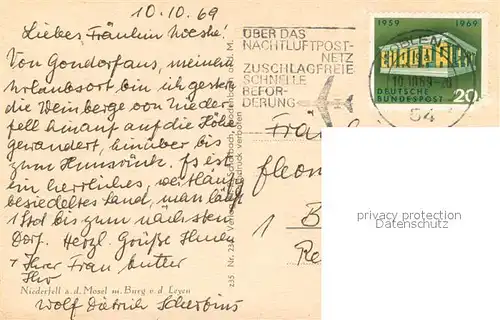 10.10.69
Liebes Fräulein Weske!
Von Gondorf aus, meinem
Urlaubsort bin ich gestern
die Weinberge von Nieder-
fell hinauf auf die Höhe
gewandert, hinüber bis
zum Hunsrück. Es ist
ein herrliches, weitläufig
besiedeltes Land, man läuft
1 Std bis zum nächsten
Dorf. Herzl. Grüße Ihnen
+ Ihrer Frau Mutter
Ihr
Niederfell a. d. Mosel m. Burg v. d. Leyen
Wolf Dietrich
ÜBER DAS
NACHTLUFTPOST-
NETZ
ZUSCHLAGFREIE
SCHNELLE
BEFÖR-
DERUNG
KOBLENZ
10.10.69-20
54
1959 1969
DEUTSCHE
BUNDESPOST 20
235 Nr.
Frau
1 B
privacy protection
Datenschutz